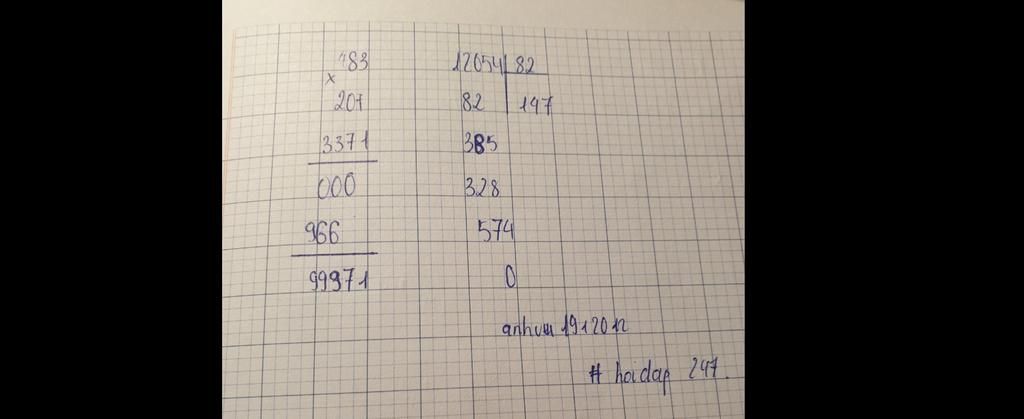 483
x
207
3381
000
966
99971
12054 82
82 147
385
328
574
0
anhvu 1912012
# hoidap 247.